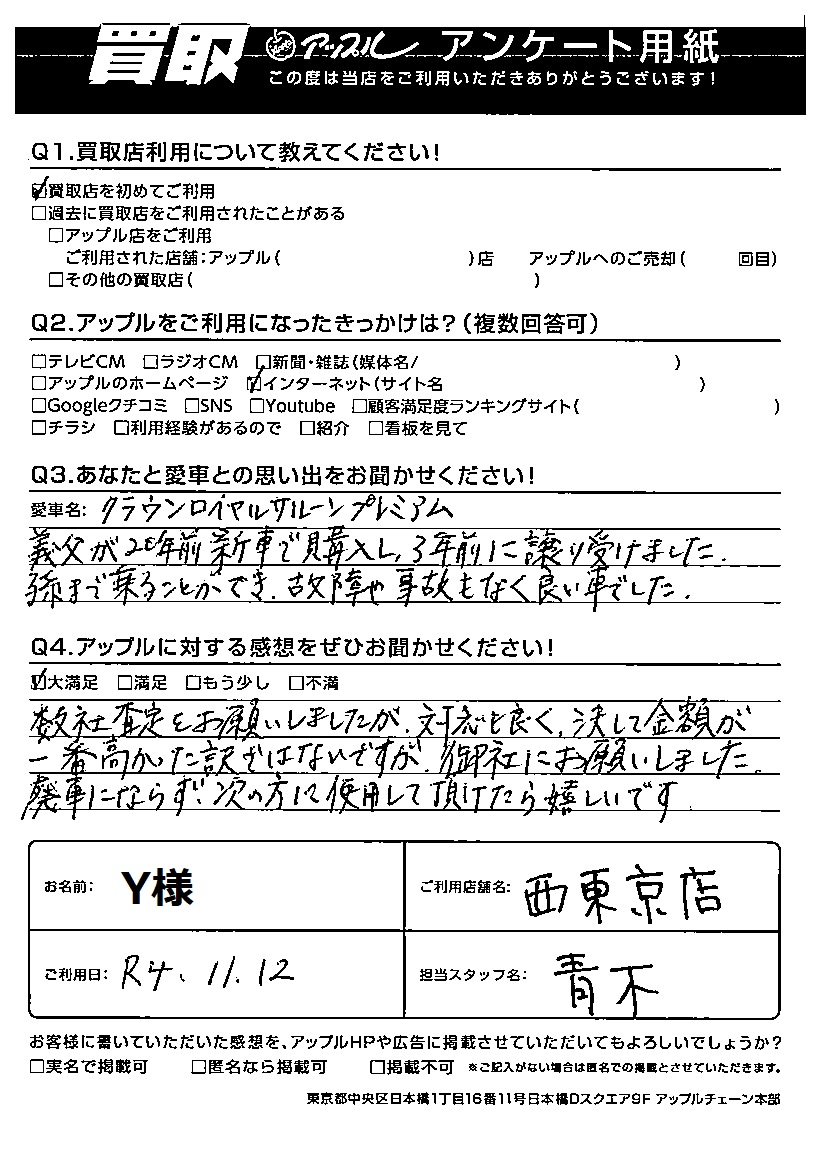 買取 アップル アンケート用紙
この度は当店をご利用いただきありがとうございます!
Q1.買取店利用について教えてください!
☑買取店を初めてご利用
□過去に買取店をご利用されたことがある
□アップル店をご利用
ご利用された店舗:アップル( )店 アップルへのご売却( 回目)
□その他の買取店( )
Q2.アップルをご利用になったきっかけは?(複数回答可)
□テレビCM □ラジオCM □新聞・雑誌(媒体名/ )
□アップルのホームページ ☑インターネット(サイト名 )
□Googleクチコミ □SNS □Youtube □顧客満足度ランキングサイト( )
□チラシ □利用経験があるので □紹介 □看板を見て
Q3.あなたと愛車との思い出をお聞かせください!
愛車名: クラウンロイヤルサルーンプレミアム
義父が20年前新車で購入し、3年前に譲り受けました.
孫まで乗ることができ、故障や事故もなく良い車でした.
Q4.アップルに対する感想をぜひお聞かせください!
☑大満足 □満足 □もう少し □不満
数社査定をお願いしましたが、対応も良く、決して金額が
一番高かった訳ではないですが、御社にお願いしました。
廃車にならず、次の方に使用して頂けたら嬉しいです
お名前: Y様 ご利用店舗名: 西東京店
ご利用日: R4、11.12 担当スタッフ名: 青木
お客様に書いていただいた感想を、アップルHPや広告に掲載させていただいてもよろしいでしょうか?
□実名で掲載可 □匿名なら掲載可 □掲載不可 ※ご記入がない場合は匿名での掲載とさせていただきます。
東京都中央区日本橋1丁目16番11号日本橋Dスクエア9F アップルチェーン本部